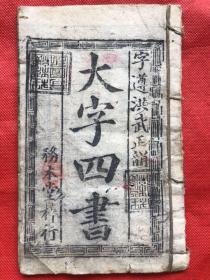 字遵洪武正韻
大字四書
務本堂梓行